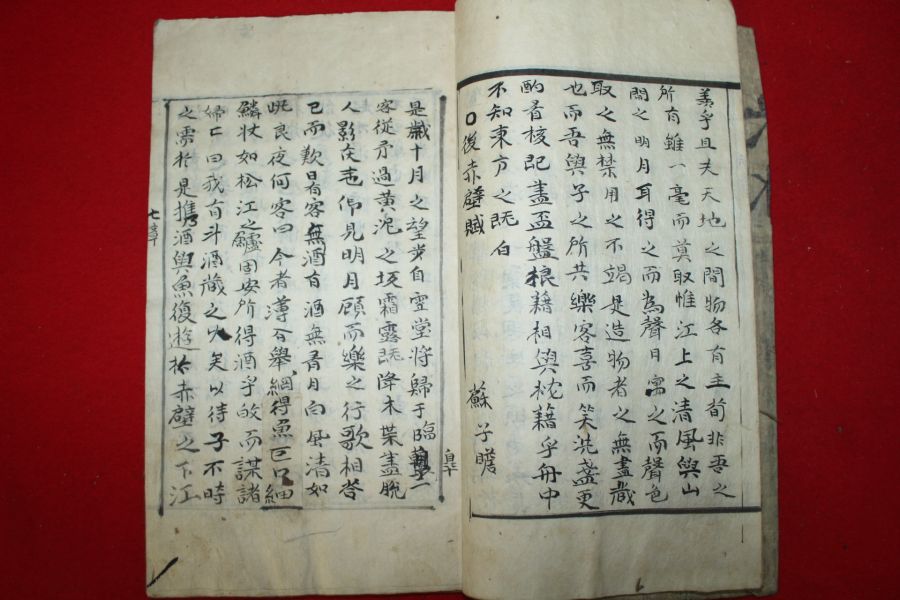 羨乎且夫天地之間物各有主苟非吾之
所有雖一毫而莫取惟江上之清風與山
間之明月耳得之而為聲目寓之而聲色
取之無禁用之不竭是造物者之無盡藏
也而吾與子之所共樂客喜而笑洗盞更
酌肴核既盡盃盤狼藉相與枕藉乎舟中
不知東方之既白
〇後赤壁賦 蘇子瞻
是歲十月之望步自雪堂將歸于臨皐二
客從予過黃泥之坂霜露既降木葉盡脫
人影在地仰見明月顧而樂之行歌相答
已而歎曰有客無酒有酒無肴月白風清如
此良夜何客曰今者薄合舉網得魚巨口細
鱗狀如松江之鱸固安所得酒乎故而謀諸
婦〻曰我有斗酒藏之久矣以待子不時
之需於是携酒與魚復遊於赤壁之下江